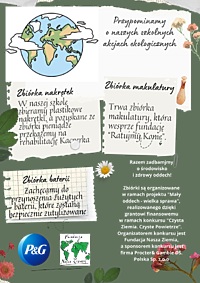 Przypominamy
o naszych szkolnych
akcjach ekologicznych
Zbiórka nakrętek
W naszej szkole
zbieramy plastikowe
nakrętki, a pozyskane ze
zbiórki pieniądze
przekażemy na
rehabilitację Kacperka
Zbiórka makulatury
Trwa zbiórka
makulatury, która
wesprze fundację
"Ratujmy Konie".
Zbiórka baterii
Zachęcamy do
przynoszenia zużytych
baterii, które zostaną
bezpiecznie zutylizowane
Razem zadbajmy
o środowisko
i zdrowy oddech!
Zbiórki są organizowane
w ramach projektu "Mały
oddech - wielka sprawa",
realizowanego dzięki
grantowi finansowemu
w ramach konkursu "Czysta
Ziemia. Czyste Powietrze".
Organizatorem konkursu jest
Fundacja Nasza Ziemia,
a sponsorem konkursu jest
firma Procter& Gamble DS
Polska Sp. z o.o
P&G
Fundacja
Nasza Ziemia